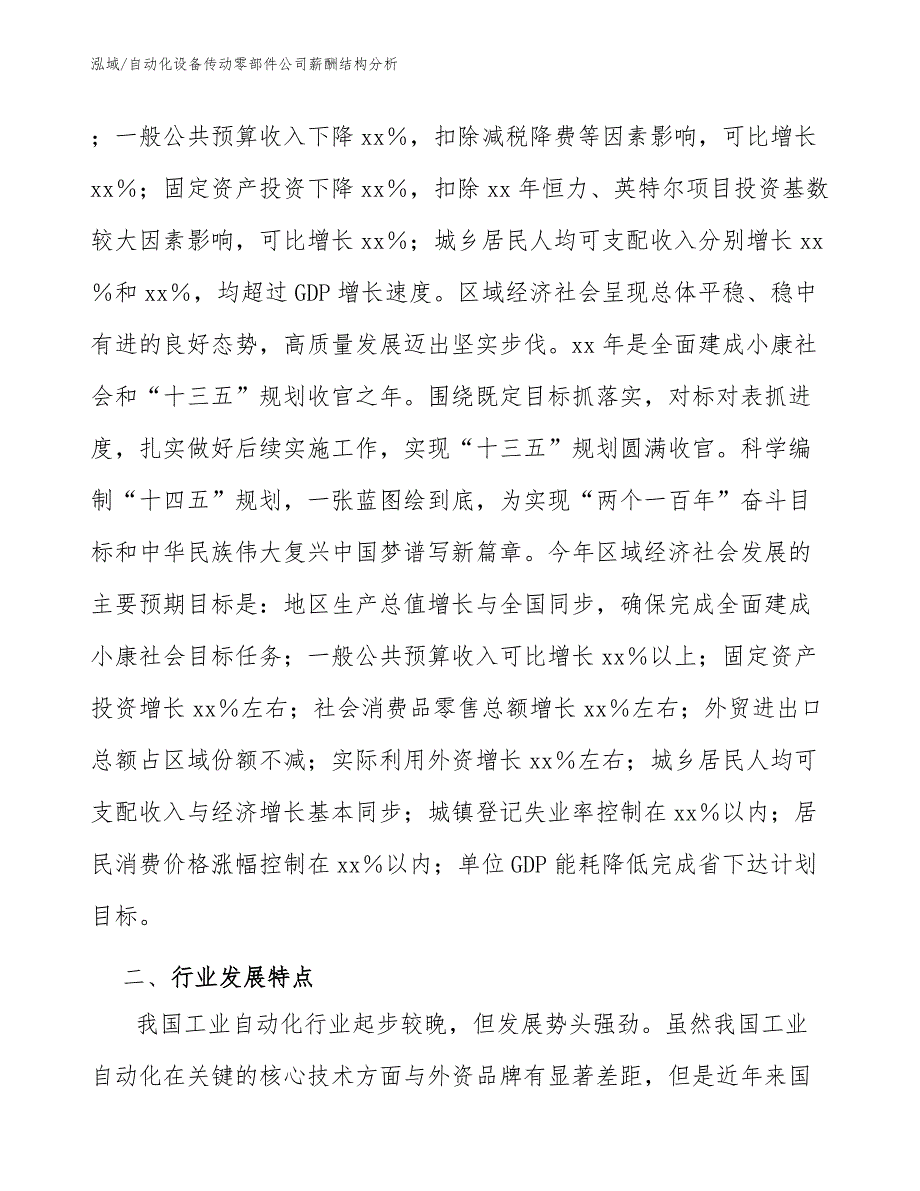 泓域/自动化设备传动零部件公司薪酬结构分析
；一般公共预算收入下降 xx％，扣除减税降费等因素影响，可比增长
xx％；固定资产投资下降 xx％，扣除 xx 年恒力、英特尔项目投资基数
较大因素影响，可比增长 xx％；城乡居民人均可支配收入分别增长 xx
％和 xx％，均超过 GDP 增长速度。区域经济社会呈现总体平稳、稳中
有进的良好态势，高质量发展迈出坚实步伐。xx 年是全面建成小康社
会和“十三五”规划收官之年。围绕既定目标抓落实，对标对表抓进
度，扎实做好后续实施工作，实现“十三五”规划圆满收官。科学编
制“十四五”规划，一张蓝图绘到底，为实现“两个一百年”奋斗目
标和中华民族伟大复兴中国梦谱写新篇章。今年区域经济社会发展的
主要预期目标是：地区生产总值增长与全国同步，确保完成全面建成
小康社会目标任务；一般公共预算收入可比增长 xx％以上；固定资产
投资增长 xx％左右；社会消费品零售总额增长 xx％左右；外贸进出口
总额占区域份额不减；实际利用外资增长 xx％左右；城乡居民人均可
支配收入与经济增长基本同步；城镇登记失业率控制在 xx％以内；居
民消费价格涨幅控制在 xx％以内；单位 GDP 能耗降低完成省下达计划
目标。
二、行业发展特点
我国工业自动化行业起步较晚，但发展势头强劲。虽然我国工业
自动化在关键的核心技术方面与外资品牌有显著差距，但是近年来国